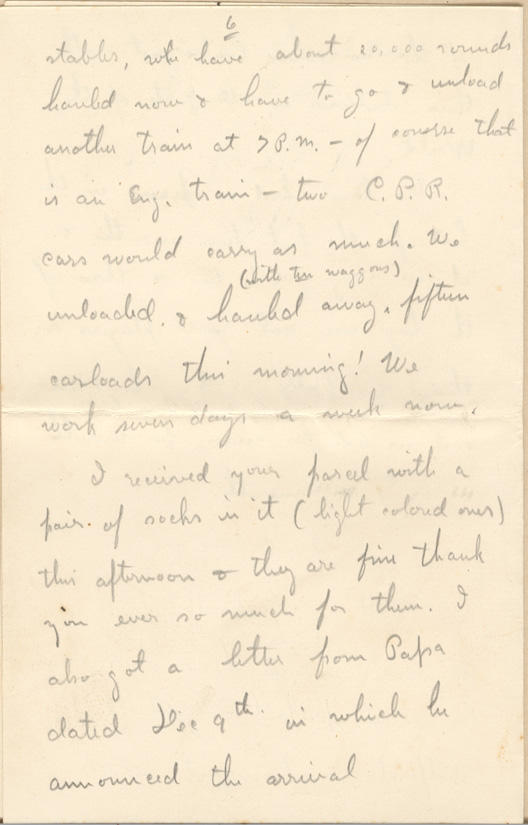 6
stables, who have about 20,000 rounds
hauled now & have to go & unload
another train at 7 P.M. – of course that
is an Eng. train – two C.P.R.
cars would carry as much. We
(with ten waggons)
unloaded, & hauled away, fifteen
carloads this morning! We
work seven days a week now.
I received your parcel with a
pair of socks in it (light colored ones)
this afternoon & they are fine thank
you ever so much for them. I
also got a letter from Papa
dated Dec 9th. in which he
announced the arrival